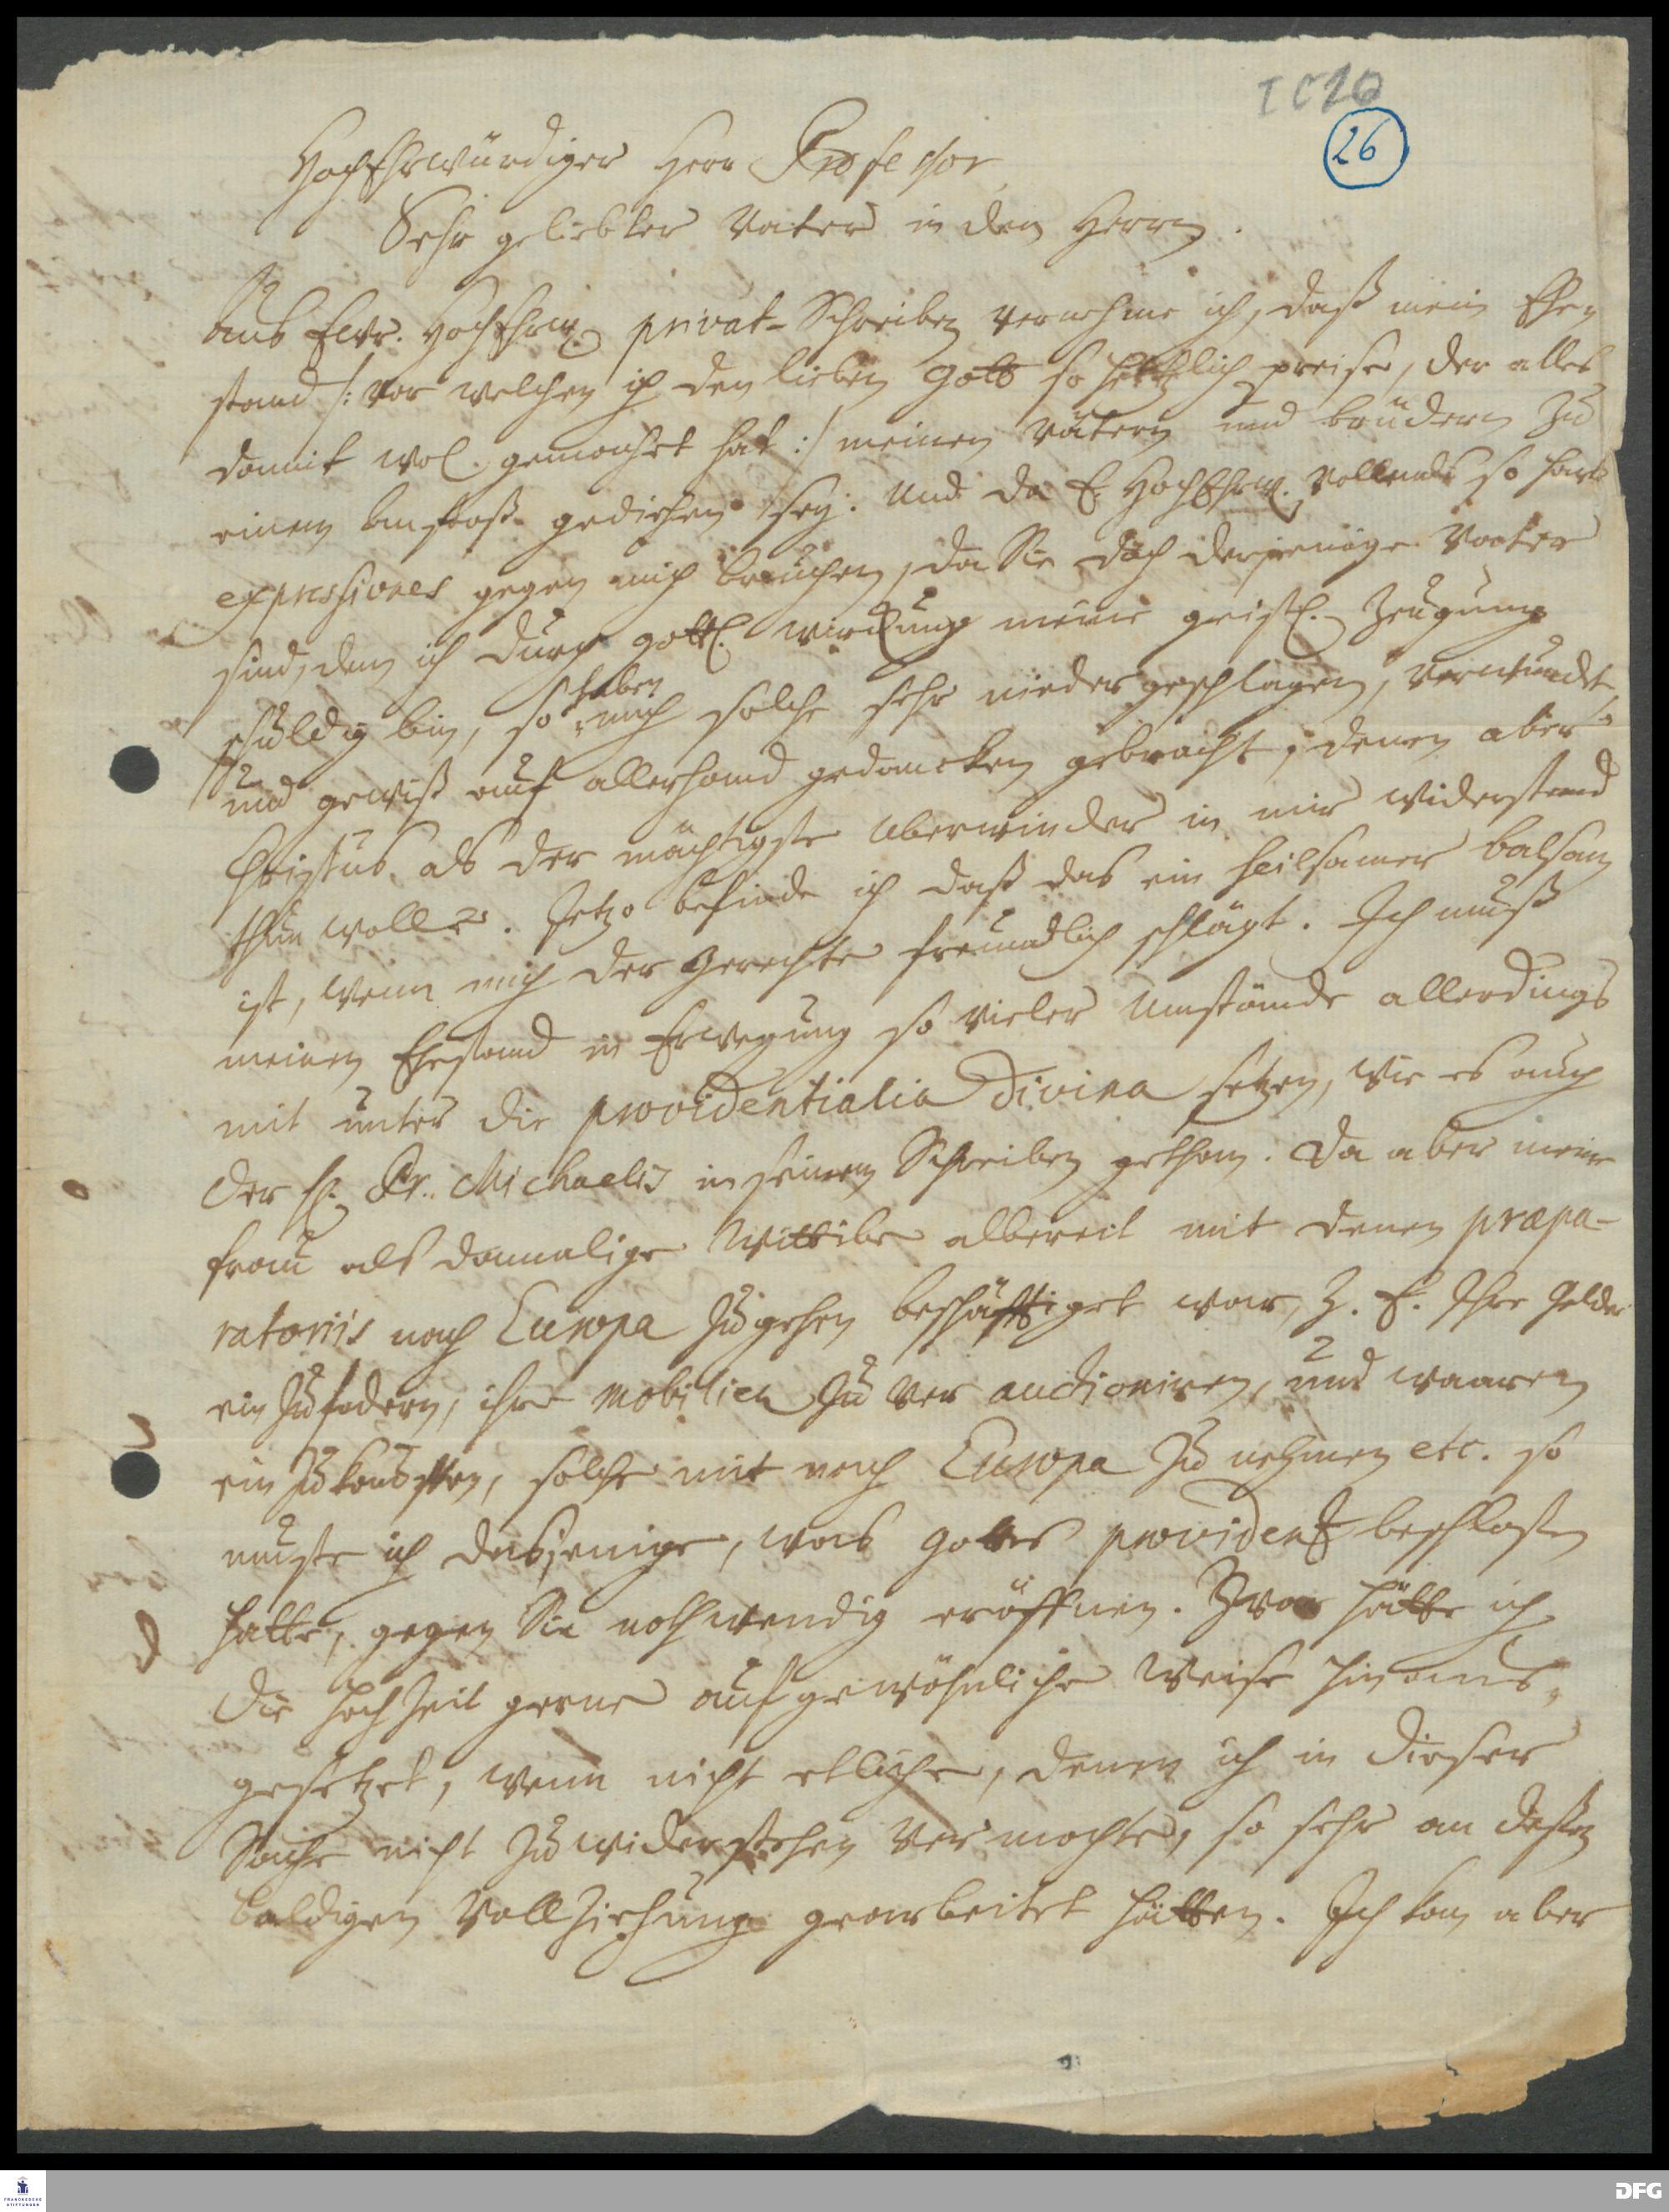 I C 20
26
HochEhrwürdiger Herr Professor
Sehr geliebter Vater in dem Herrn.
Aus Ewr. HochEhrw. privat-Schreiben vernehme ich, daß mein Ehe
stand /: vor welchen ich den lieben Gott so hertzlich preise, der alles
damit wol. gemachet hat :/ meinen Vätern und brüdern zu
einem Anstoß gediehen sey. Und da E. HochEhrw. vollends so harte
expressiones gegen mich brauchen, da Sie doch derjenige Vater
sind, dem ich durch göttl. wirckung meine geistl. Zeugung
schuldig bin, so haben mich solche sehr nieder geschlagen, verwundet,
und gewiß auf allerhand gedancken gebracht, denen aber
Christus als der mächtigste Uberwinder in mir widerstand
thun wolle. Jetzo befinde ich daß das ein heilsamer balsam
ist, wenn mich der Gerechte freundlich schlägt. Ich muß
meinen Ehestand in Erwegung so vieler Umstände allerdings
mit unter die providentialia Divina setzen, wie es auch
der H. Dr. Michaelis in seinem Schreiben gethan. Da aber meine
frau als damalige Wittibe albereit mit denen præpa-
ratoriis nach Europa zu gehen beschäfftiget war, z. E. Ihre Gelder
ein zu fodern, ihre Mobilien zu ver auctioniren, und waaren
ein zu kauffen, solche mit nach Europa zu nehmen etc. so
muste ich dasjenige, was Gottes providentz beschlossen
hatte, gegen Sie nothwendig eröffnen. Zwar hätte ich
die Hochzeit gerne auf gewöhnliche Weise hinaus-
gesetzet, wenn nicht etliche, denen ich in dieser
Sache nicht zu widerstehen vermochte, so sehr an dessen
baldigen Vollziehung gearbeitet hätten. Ich kan aber
FRANCKESCHE STIFTUNGEN
DFG